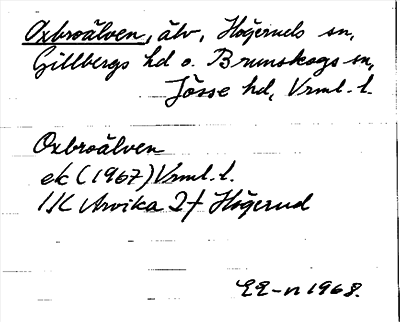 Oxbroälven, älv, Högeruds sn,
Gillbergs hd o. Brunskogs sn,
Jösse hd, Vrml. l.
Oxbroälven
ek (1967) Vrml. l.
11C Arvika 2f Högerud
EE-n 1968.